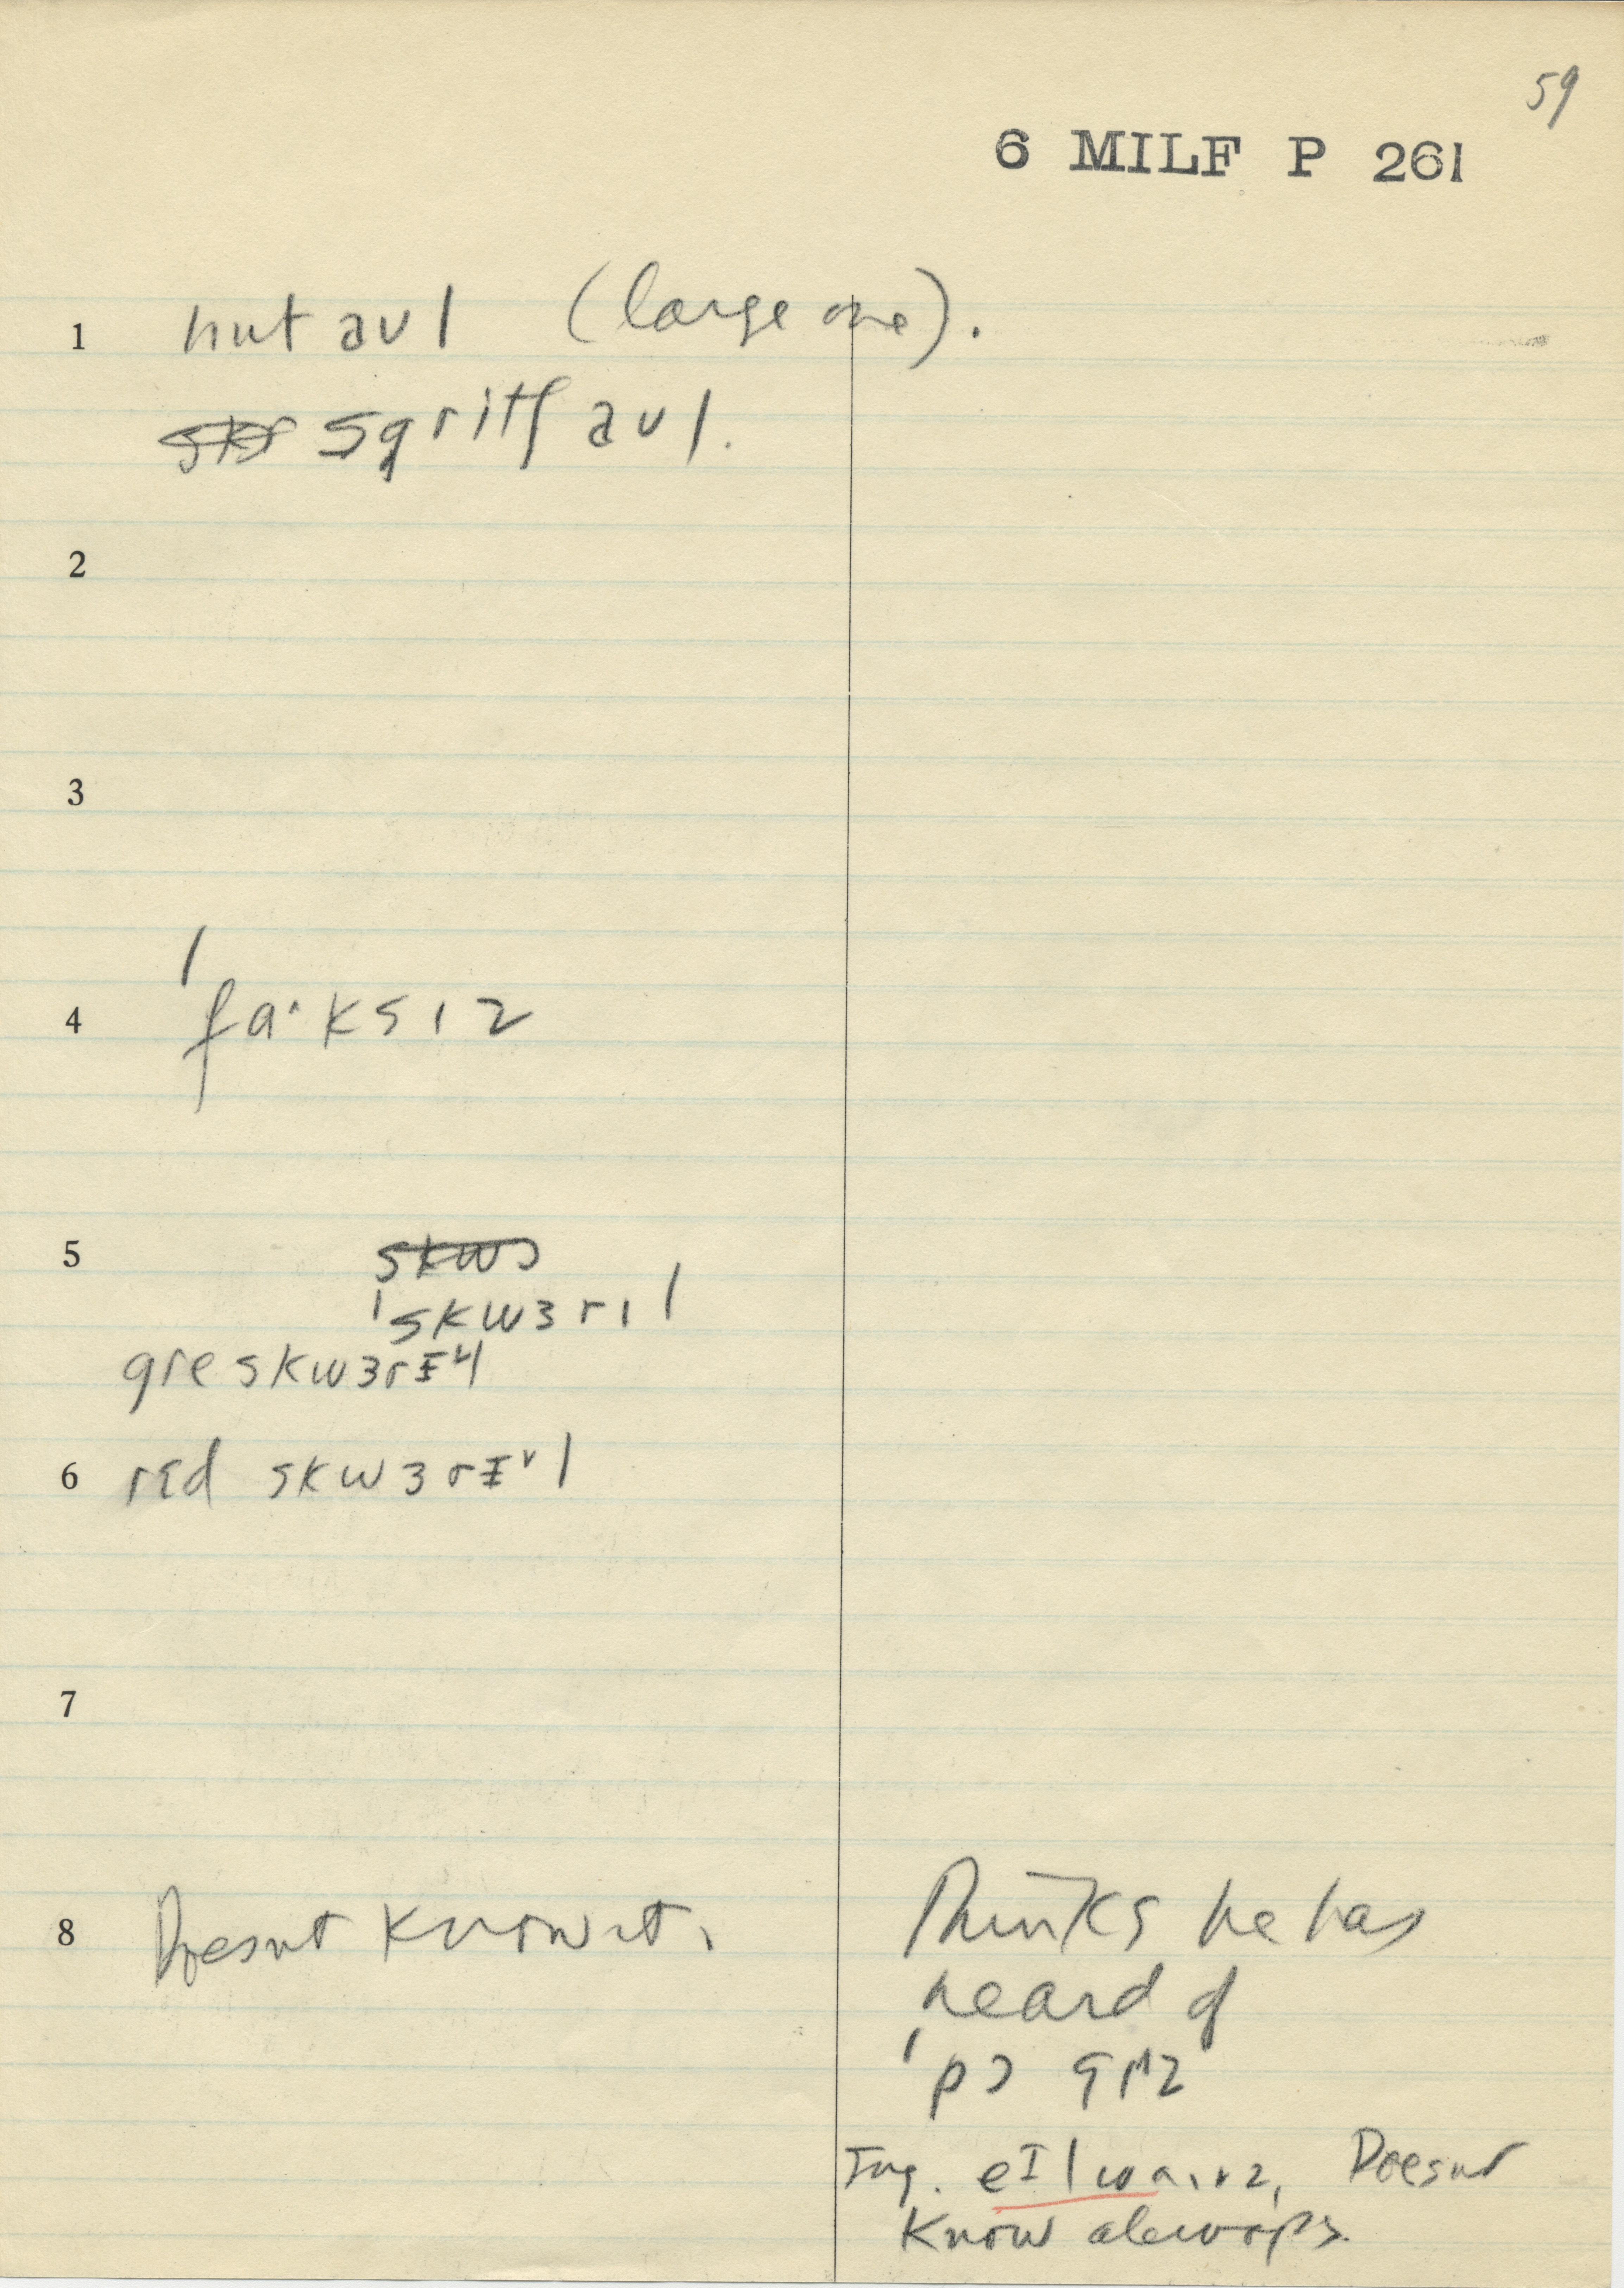 59
6 MILF P 261
1 hut aul (large one).
sgritʃ aul.
2
3
4 ˈfɑˑksɪz
5
ˈskwɜrɪl
gre skwɜrɪl
6 rɛd skwɜrɪl
7
8 Doesnt know it. Thinks he has
heard of
ˈpɔ
eɪlwɑɪvz, Doesnt
Know alewops.